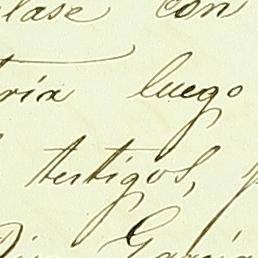 clase con
ria luego
testigos,
García